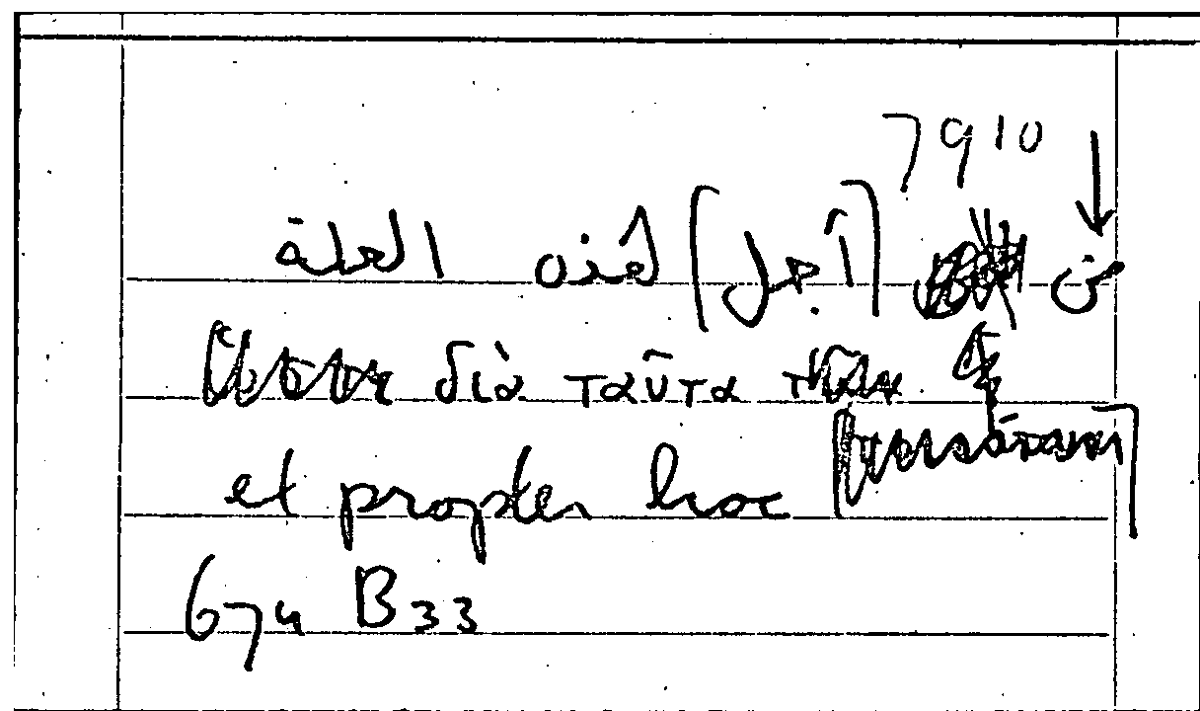 7910 ↓
من [أجل] هذه العلة
διὰ ταῦτα
et propter hoc
674 B33